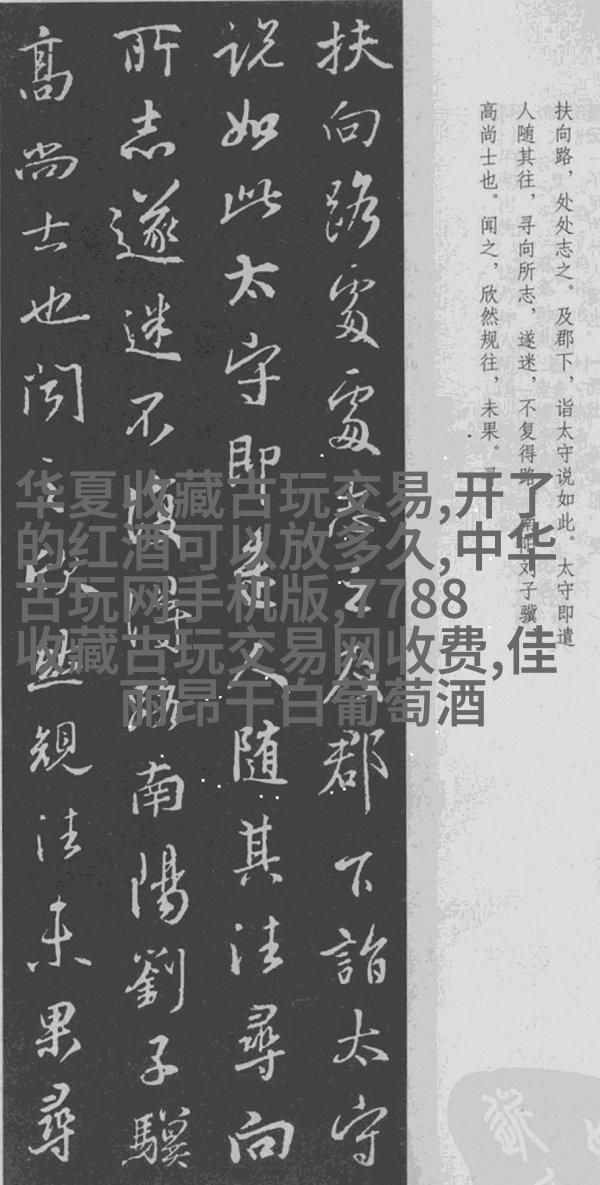 扶向路，处处志之。及郡下，诣太守说如此。太守即遣
人随其往，寻向所志，遂迷，不复得路。南阳刘子骥，
高尚士也。闻之，欣然规往，未果。寻
扶向路處處志之及郡下詣太守
説如此太守即遣人随其往尋向
所志遂迷不復得路南陽劉子驥
高尚士也闻之欣然規往未果尋
华夏收藏古玩交易,开了
的红酒可以放多久,中华
古玩网手机版,7788
收藏古玩交易网收费,佳
丽昂干白葡萄酒